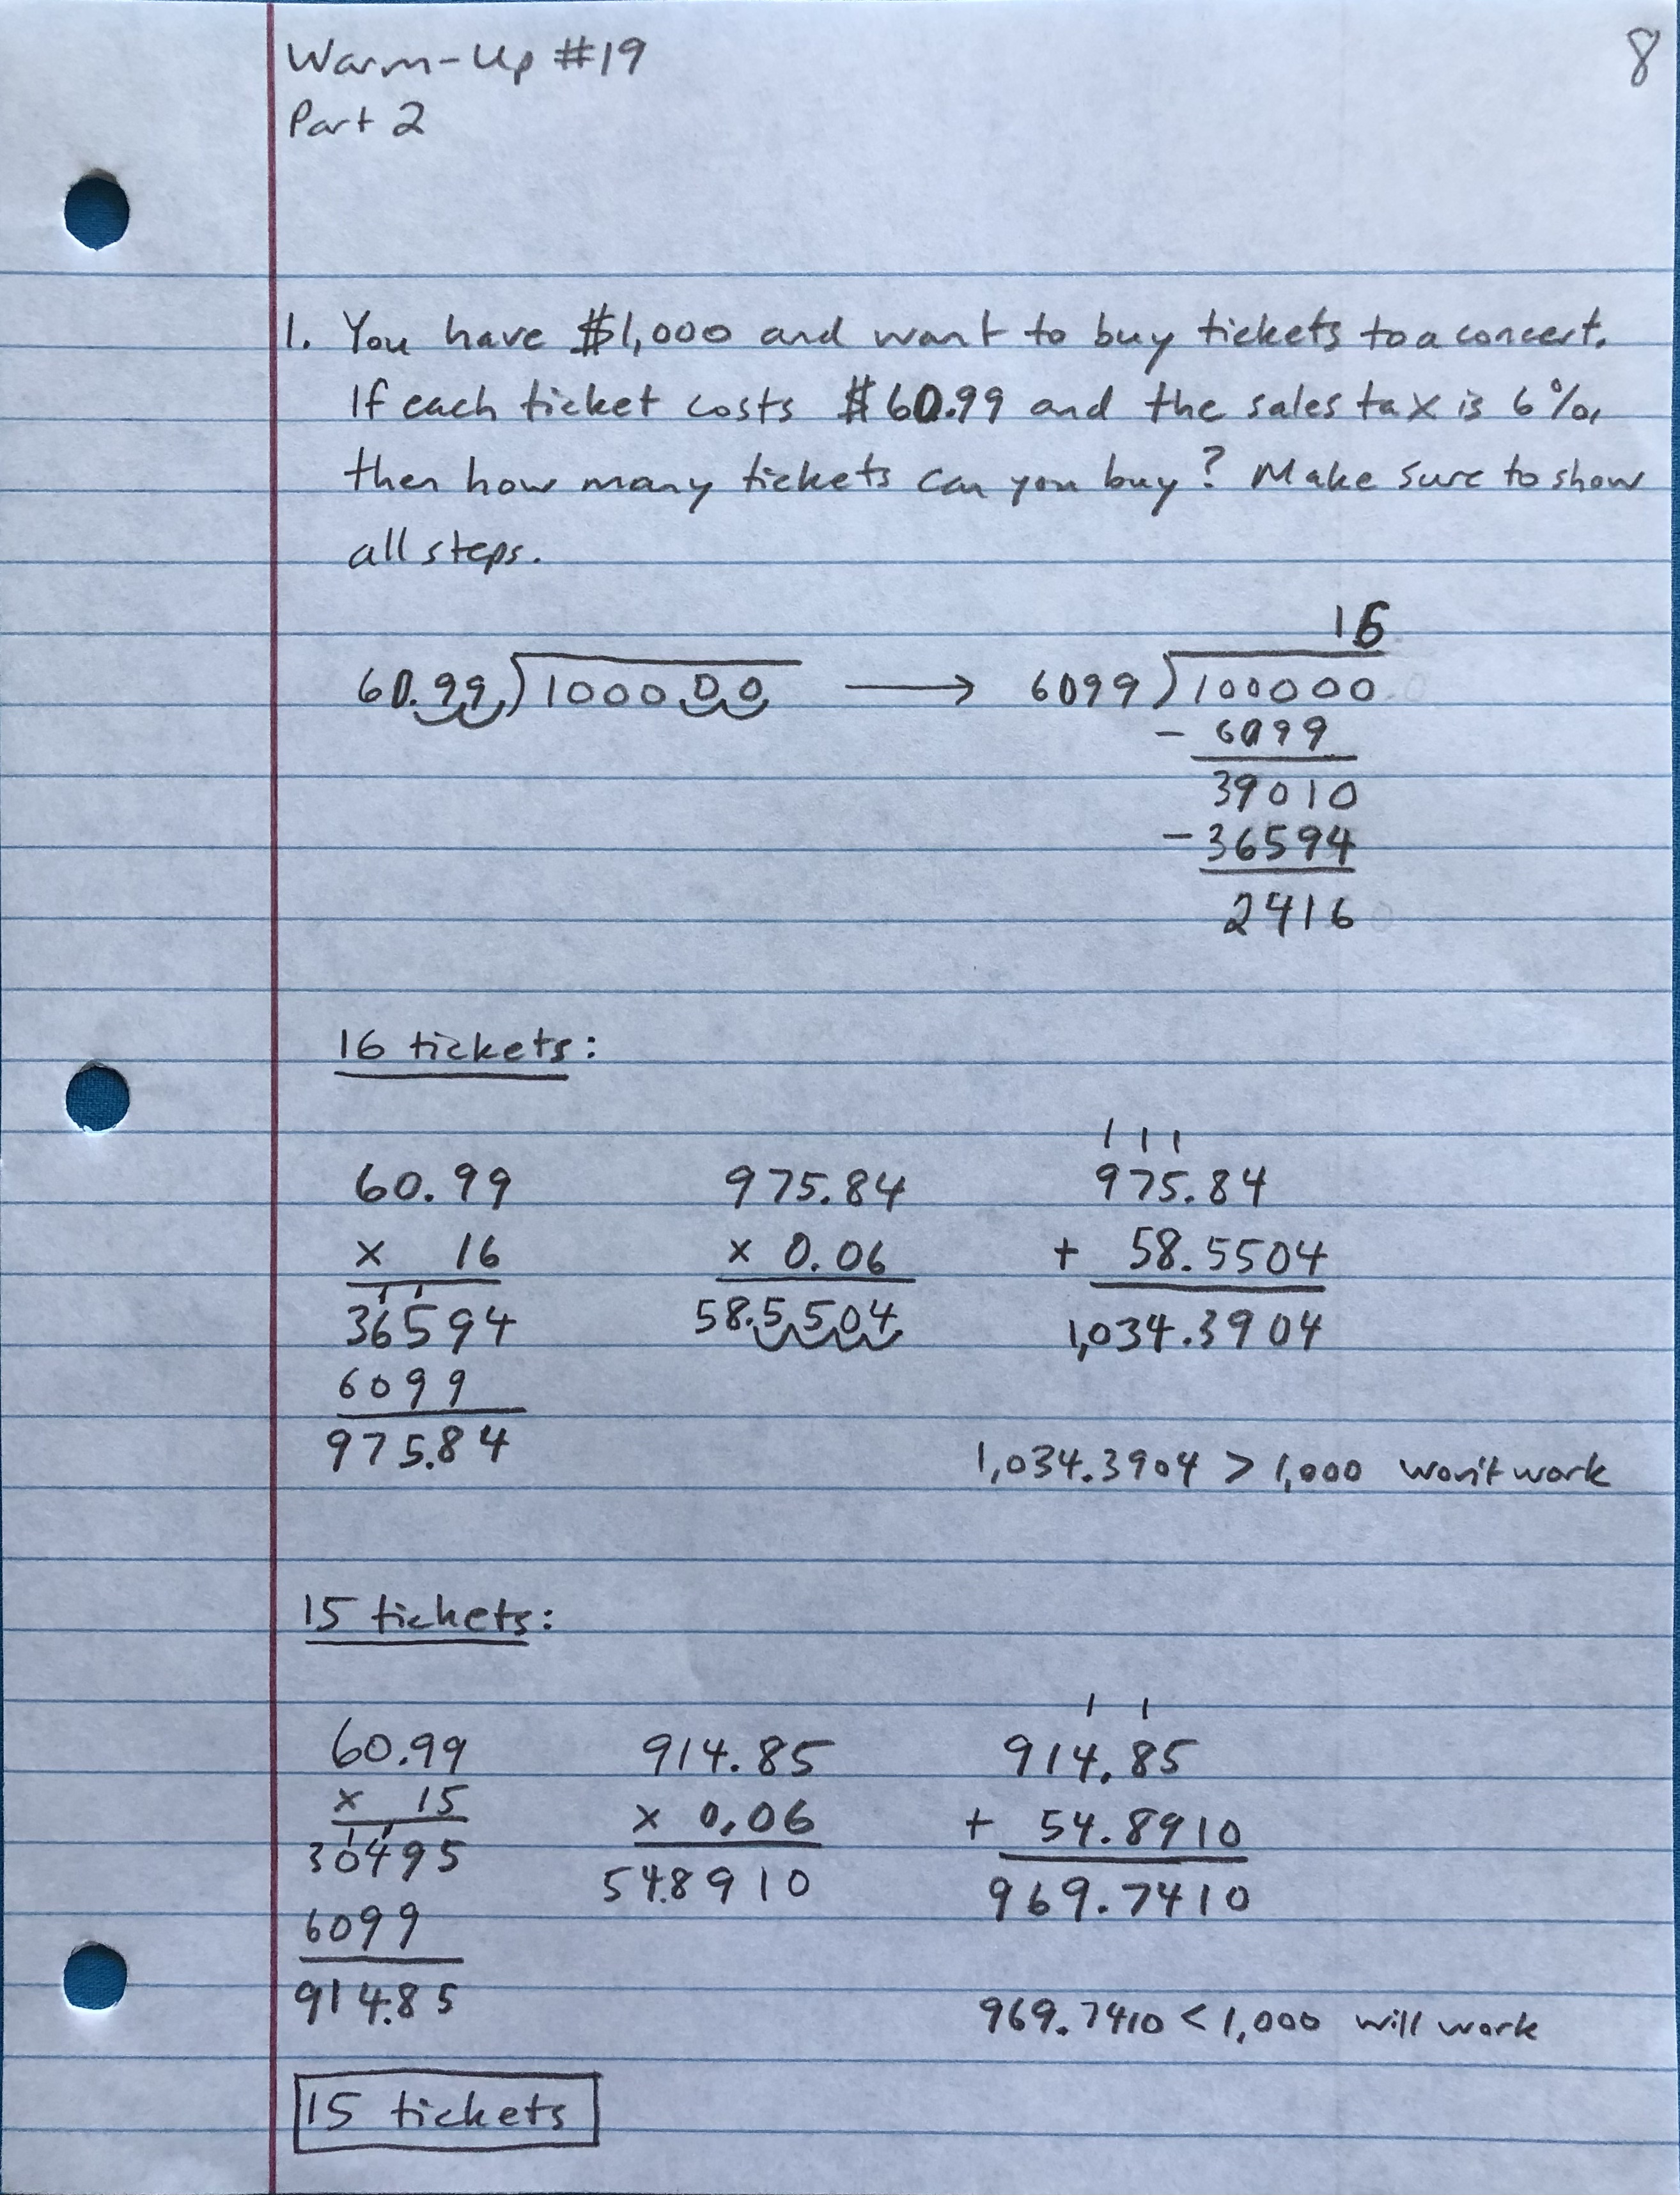 Warm-Up #19
8
Part 2
1. You have $1,000 and want to buy tickets to a concert.
If each ticket costs $60.99 and the sales tax is 6%,
then how many tickets can you buy? Make sure to show
all steps.
16
60.99.)100000 → 6099)100000
- 6099
39010
- 36594
2416
16 tickets:
1 1 1
60.99 975.84 975.84
x 16 x 0.06 + 58.5504
1 1
36594 58.5504 1,034.3904
6099
975.84
1,034.3904 > 1,000 won't work
15 tickets:
1 1
60.99 914.85 914.85
x 15 x 0.06 + 54.8910
1 1
30495 54.8910 969.7410
6099
914.85
969.7410 < 1,000 will work
15 tickets